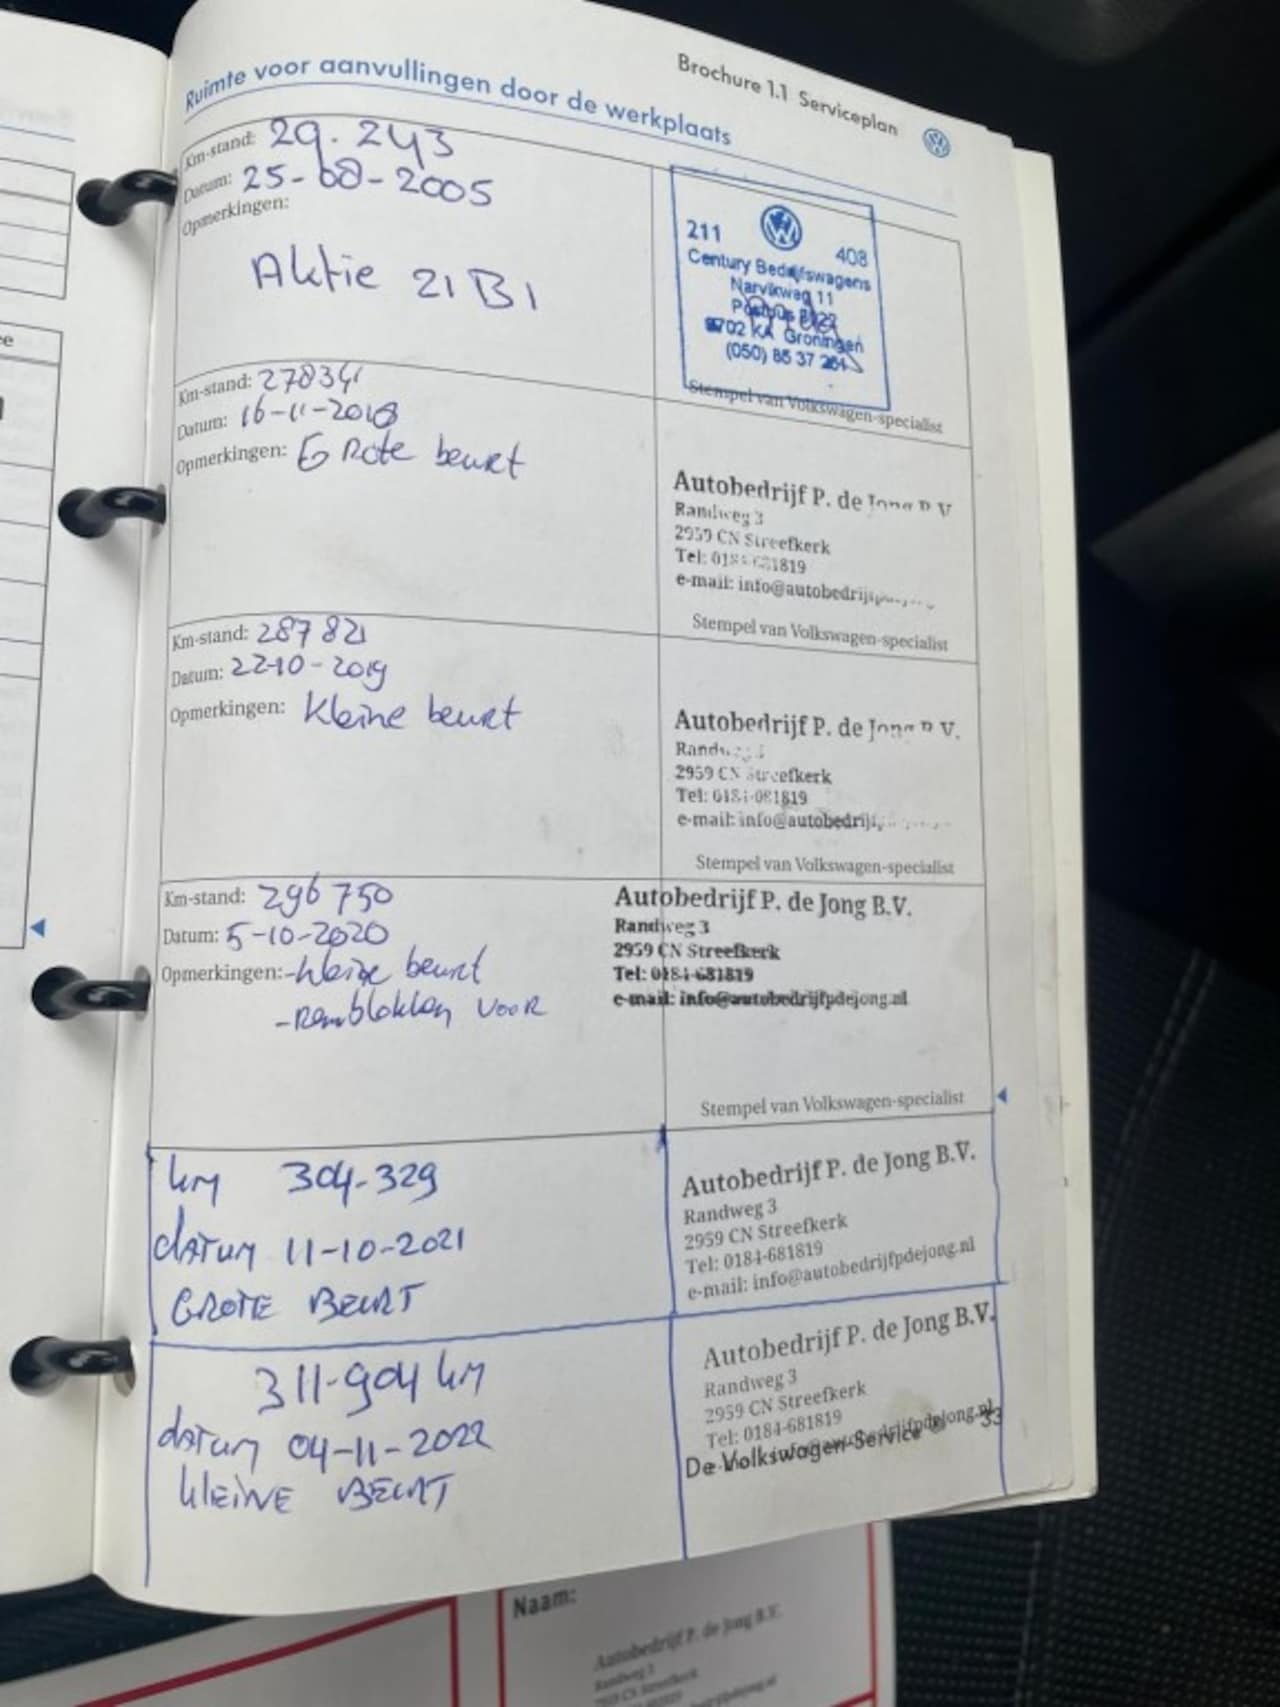 Brochure 1.1 Serviceplan
Ruimte voor aanvullingen door de werkplaats
Km-stand: 29.243
Datum: 25-08-2005
Opmerkingen:
Aktie 21B1
211 408
Century Bedrijfswagens
Narvikweg 11
Postbus
9702 KA Groningen
(050) 85 37 264
Stempel van Volkswagen-specialist
Km-stand: 278341
Datum: 16-11-2018
Opmerkingen: GRote beurt
Autobedrijf P. de Jong B.V.
Randweg 3
2959 CN Streefkerk
Tel: 0184-681819
e-mail: info@autobedrijf
Stempel van Volkswagen-specialist
Km-stand: 287821
Datum: 22-10-2019
Opmerkingen: Kleine beurt
Autobedrijf P. de Jong B.V.
Randweg 3
2959 CN Streefkerk
Tel: 0184-681819
e-mail: info@autobedrijf
Stempel van Volkswagen-specialist
Km-stand: 296750
Datum: 5-10-2020
Opmerkingen: -kleine beurt
-Remblokken VOOR
Autobedrijf P. de Jong B.V.
Randweg 3
2959 CN Streefkerk
Tel: 0184-681819
e-mail: info@autobedrijfpdejong.nl
Stempel van Volkswagen-specialist
km 304-329
datum 11-10-2021
GROTE BEURT
Autobedrijf P. de Jong B.V.
Randweg 3
2959 CN Streefkerk
Tel: 0184-681819
e-mail: info@autobedrijfpdejong.nl
311-904 km
datum 04-11-2022
kLEINE BEURT
Autobedrijf P. de Jong B.V.
Randweg 3
2959 CN Streefkerk
Tel: 0184-681819
e-mail: info@autobedrijfpdejong.nl
De Volkswagen-Service 33
Naam:
Autobedrijf P. de Jong B.V.
Randweg 3
2959 CN Streefkerk